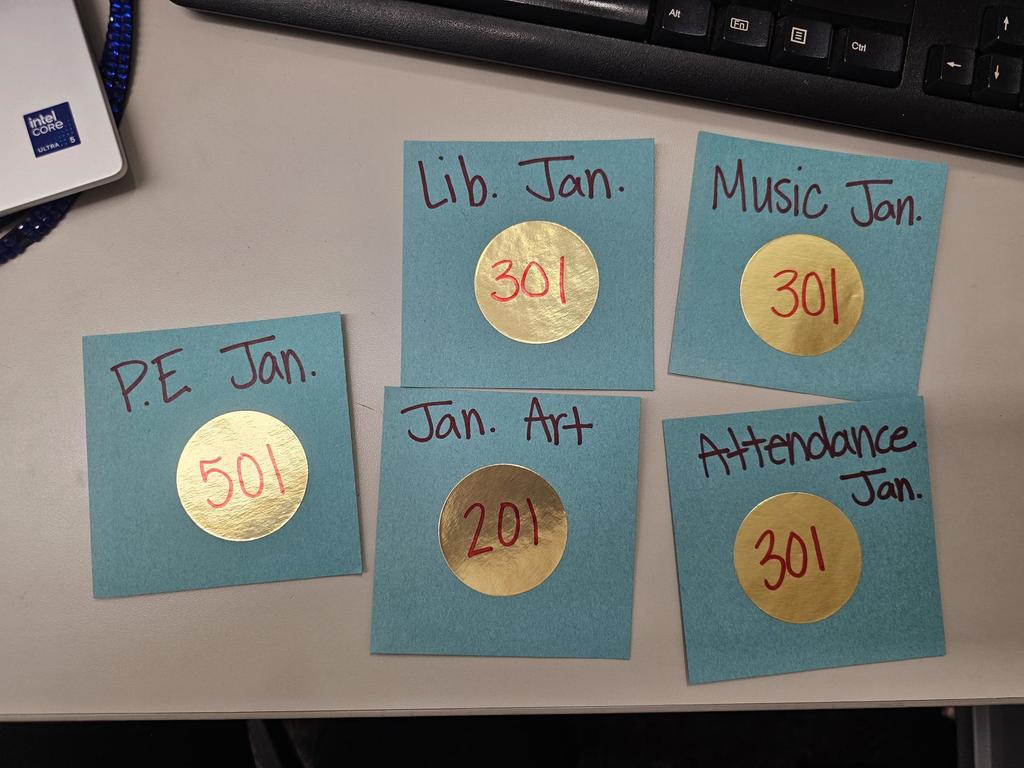 Alt
Fn
Ctrl
intel
CORE
ULTRA 5
Lib. Jan.
301
Music Jan.
301
P.E. Jan.
501
Jan. Art
201
Attendance
Jan.
301